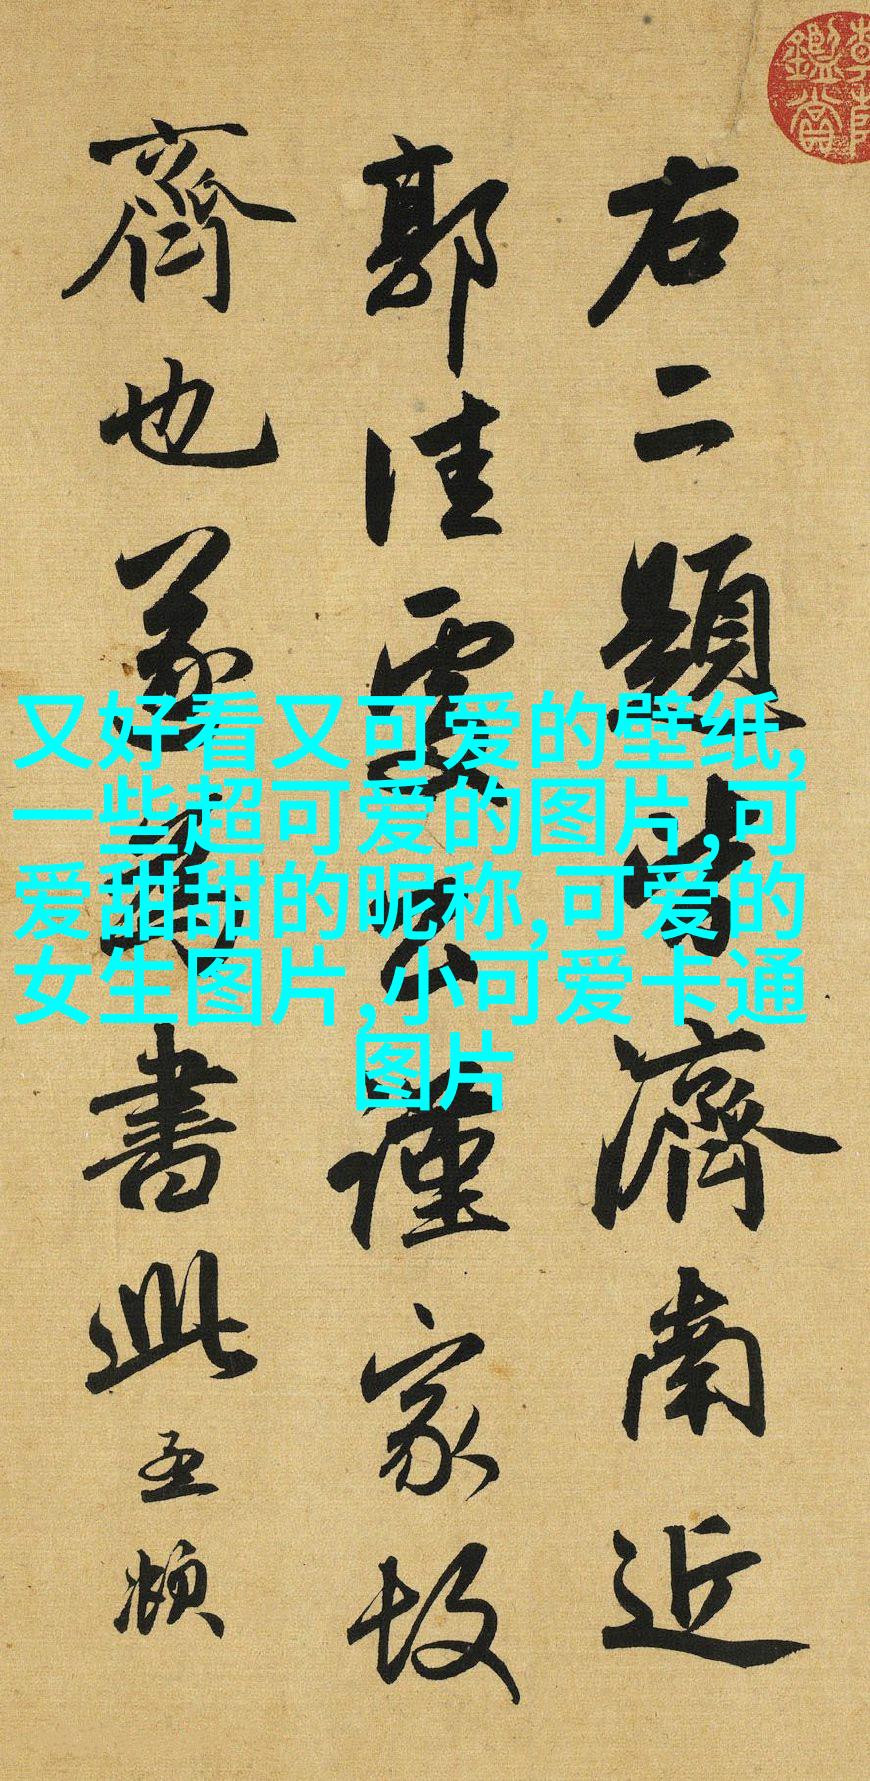 右二題皆濟南近
郭佳處公謹家故
齊也遂為書此孟頫
又好看又可爱的壁纸,
一些超可爱的图片,可
爱甜甜的昵称,可爱的
女生图片,小可爱卡通
图片